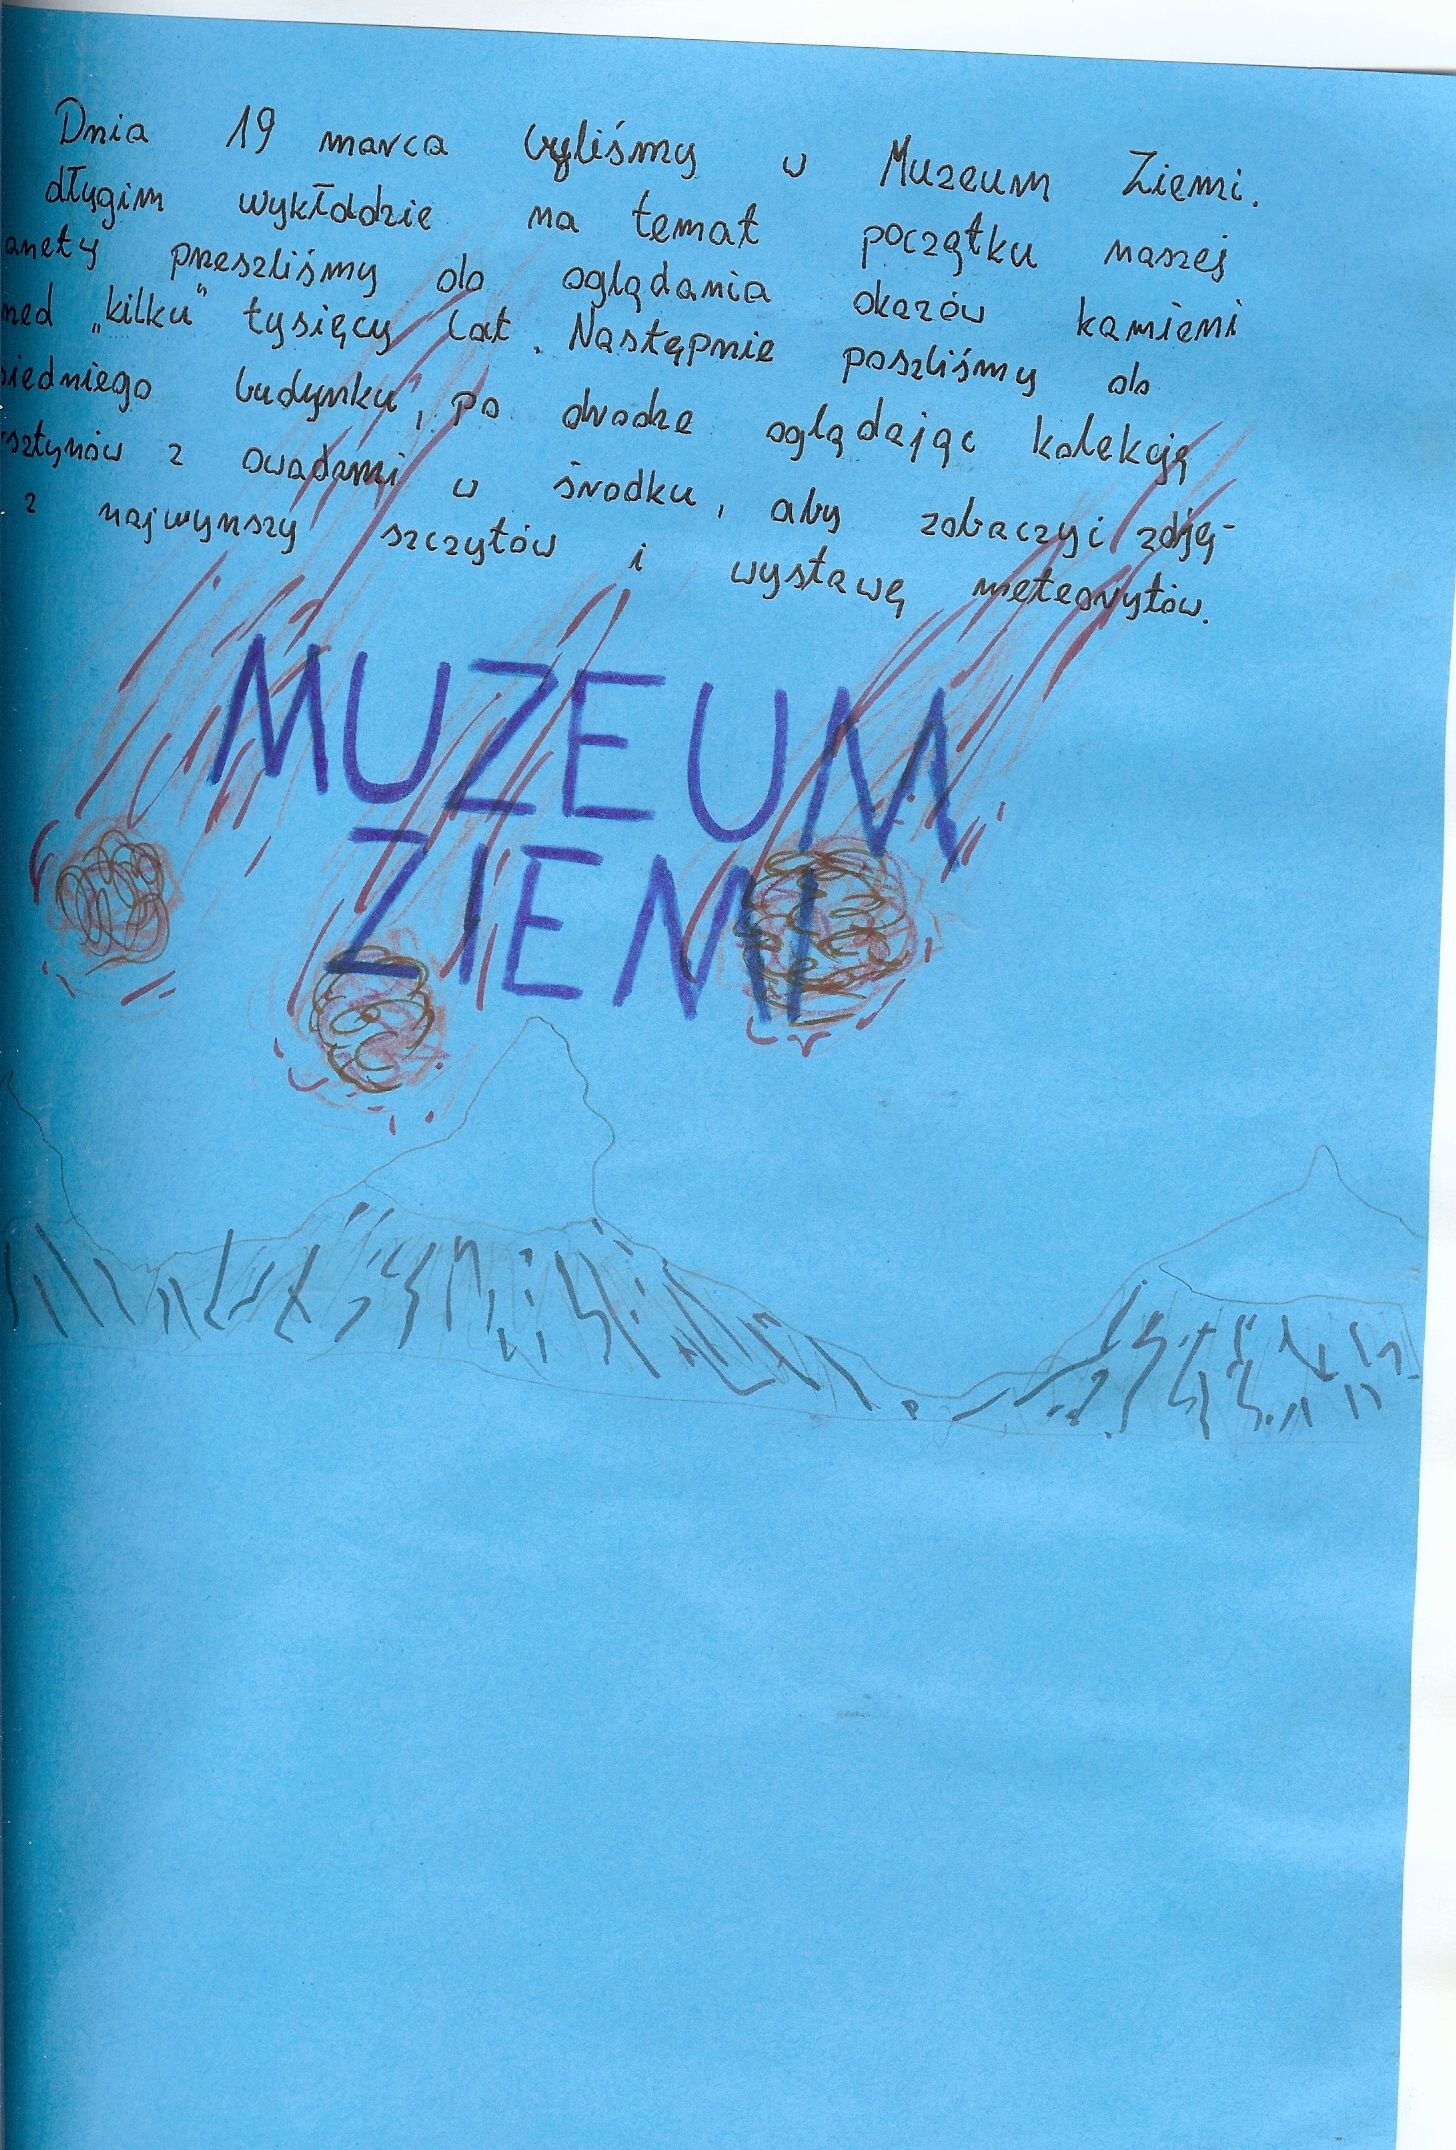 Dnia 19 marca byliśmy w Muzeum Ziemi.
długim wykłddzie na temat początku naszej
anety przeszliśmy do oglądania okazów kamieni
zed „kilku" tysięcy lat. Następnie poszliśmy do
siedniego budynku, po drodze oglądając kolekcję
rsztynów z owadami w środku, aby zobaczyć zdję-
z najwyższy szczytów i wystawę meteorytów.
MUZEUM
ZIEMI